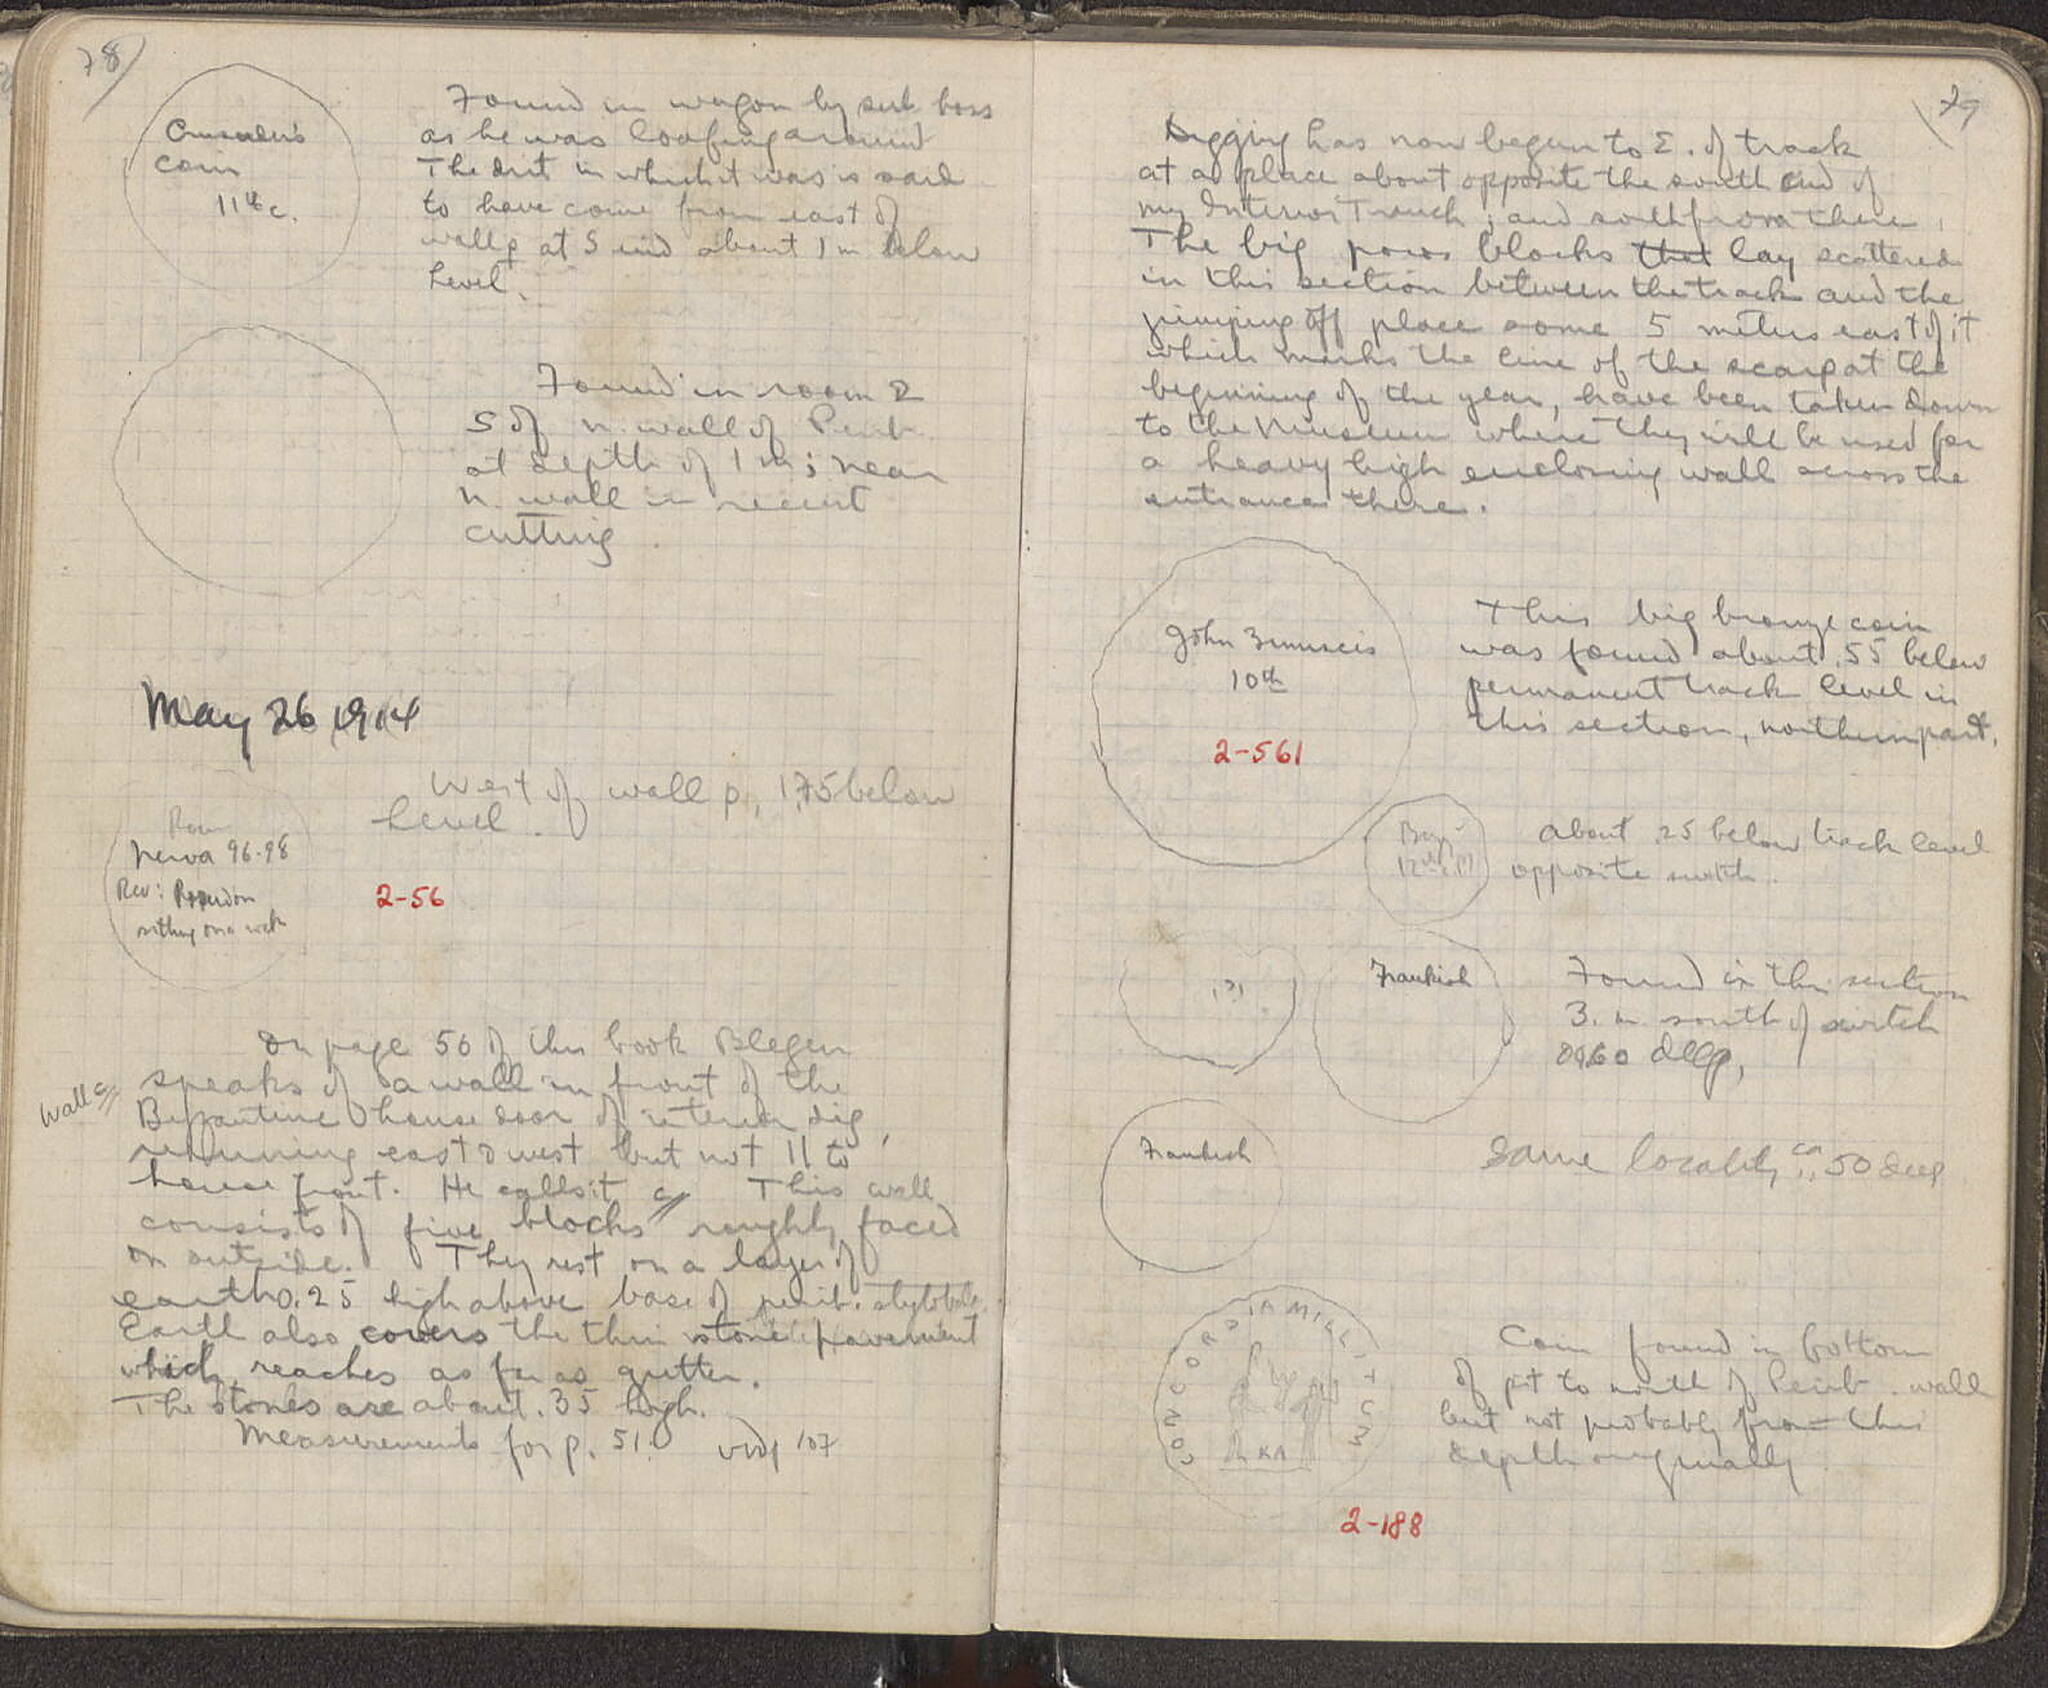 78
Crusader's
coin
11th c.
Found in wagon by sub boss
as he was loafing around
The dirt in which it was is said
to have come from east of
wall p at S end about 1 m below
level.
Found in room 2
S of n. wall of Perib.
at depth of 1 m; near
n. wall in recent
cutting.
May 26 1914
West of wall p, 1.75 below
level.
Rom
Nerva 96-98
Rev: Poseidon
sitting on a rock
2-56
On page 50 of this book Blegen
speaks of a wall in front of the
Byzantine house door of interior dig,
running east & west but not 11 to
house front. He calls it c. This wall
wall c
consists of five blocks roughly faced
on outside. They rest on a layer of
earth 0.25 high above base of perib. stylobate.
Earth also covers the thin stone pavement
which reaches as far as gutter.
The stones are about .35 high.
Measurements for p. 51. vid 107
79
Digging has now begun to E. of track
at a place about opposite the south end of
my Interior Trench, and south from there.
The big poros blocks that lay scattered
in this section between the track and the
jumping off place some 5 meters east of it
which marks the line of the scarp at the
beginning of the year, have been taken down
to the Museum where they will be used for
a heavy high enclosing wall across the
entrance there.
John Zimisces
10th
2-561
This big bronze coin
was found about .55 below
permanent track level in
this section, northern part.
Byz.
12th c (?)
about .25 below track level
opposite switch.
(?)
Frankish
Found in this section
3. m south of switch
0.60 deep,
Frankish
Same locality ca .50 deep
CONCORDIA MILITUM
KA
2-188
Coin found in bottom
of pit to north of Perib. wall
but not probably from this
depth originally